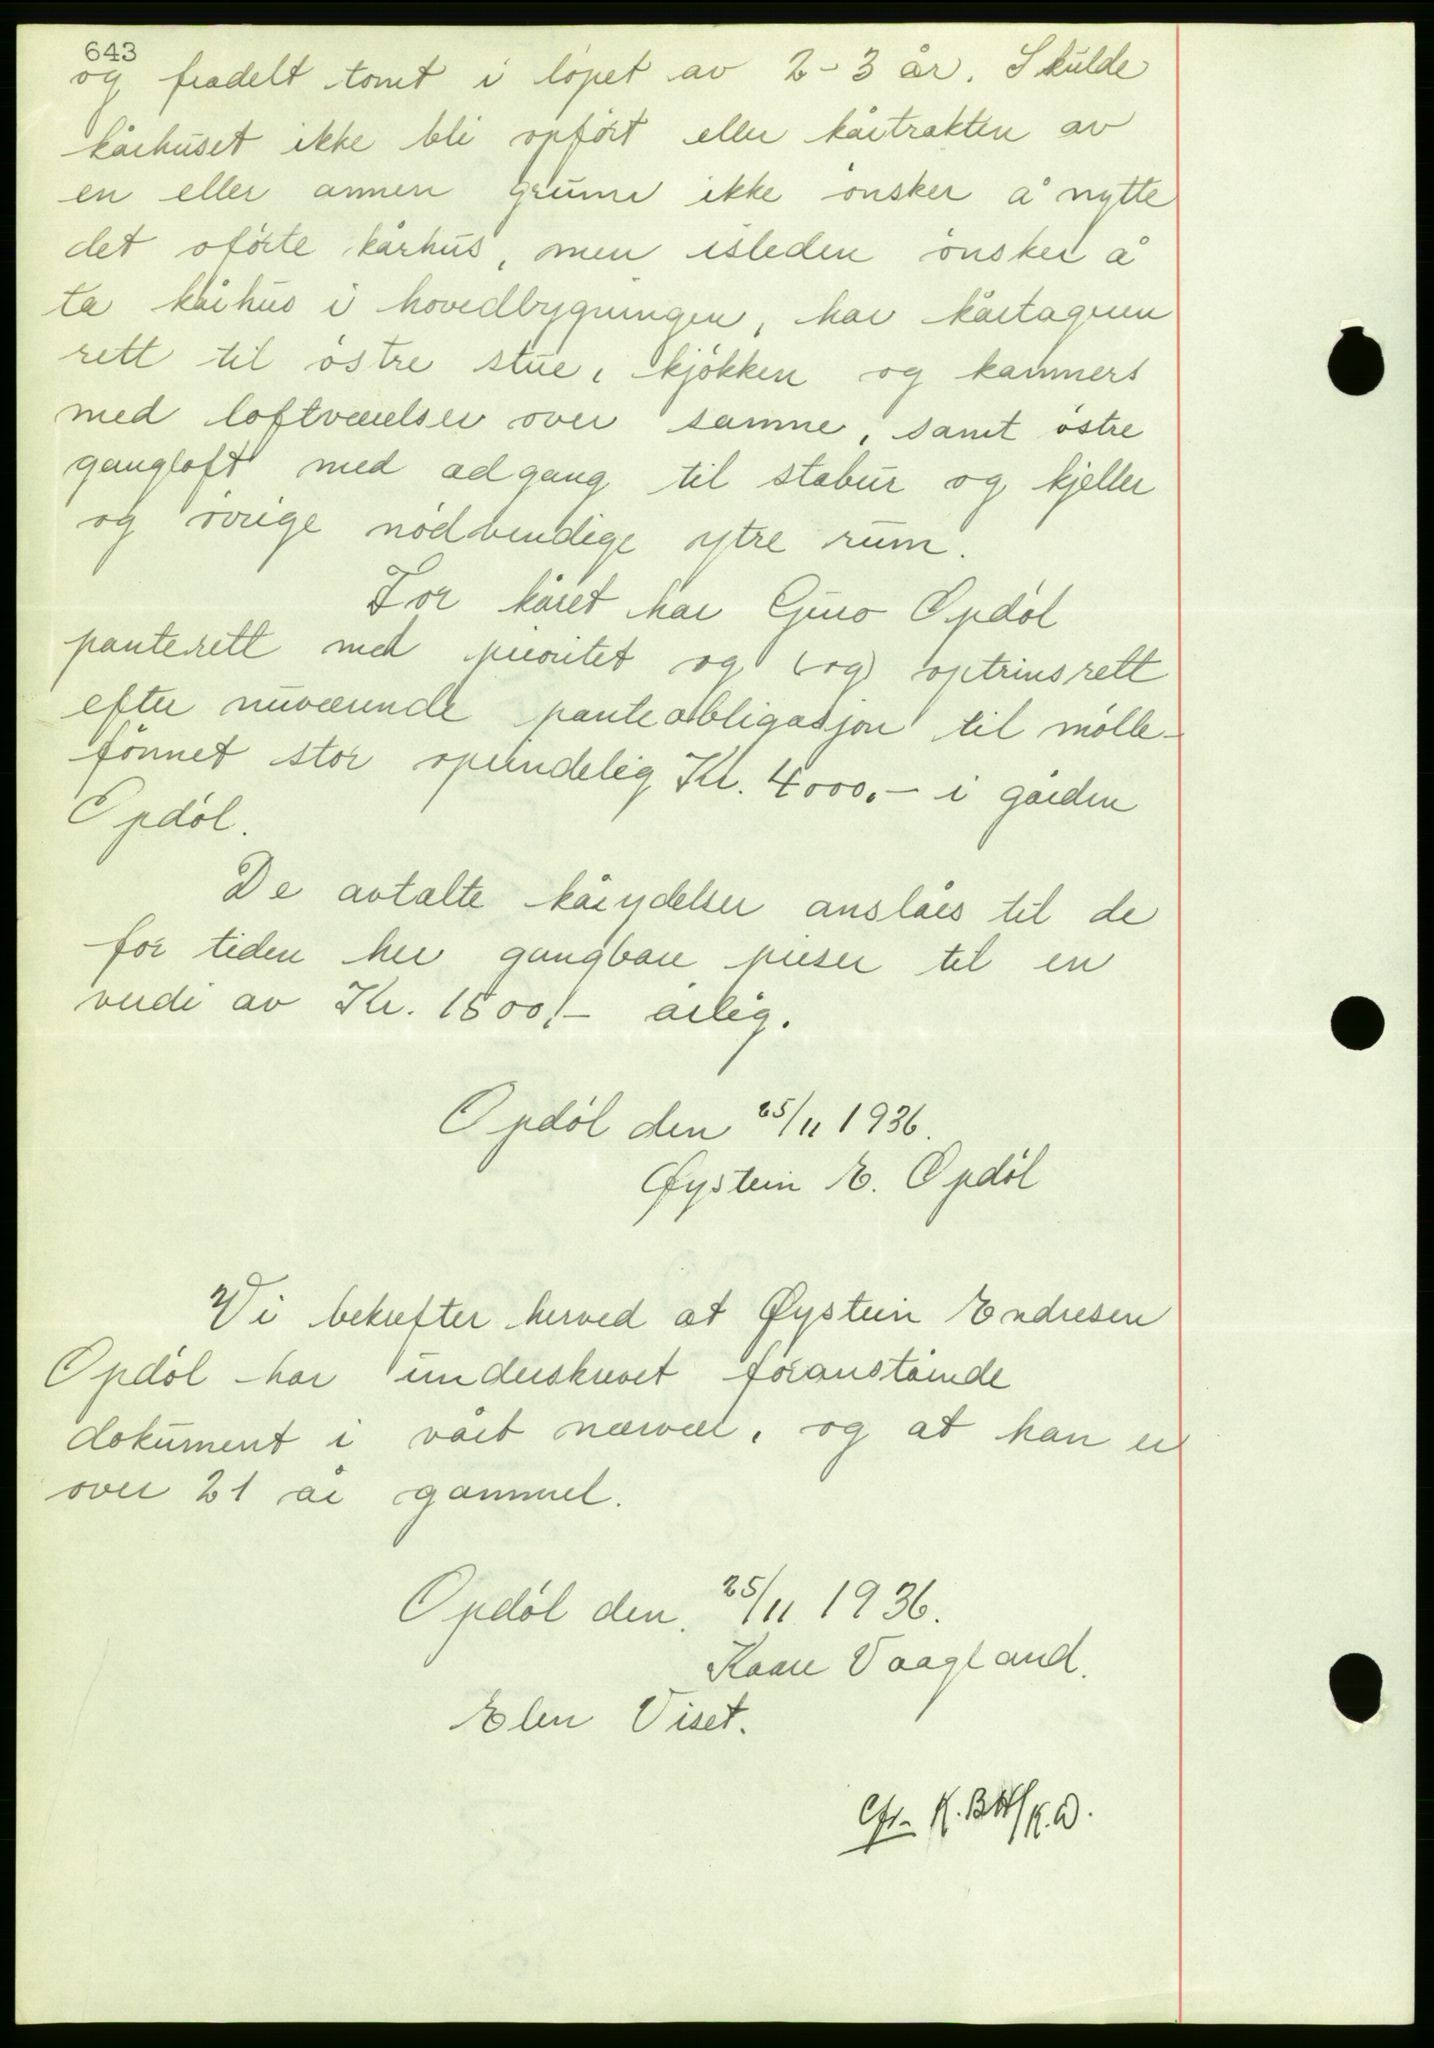 643
og fradelt tomt i løpet av 2-3 år. Skulde
kårhuset ikke bli opført eller kårtrakten av
en eller annen grunn ikke ønsker å nytte
det oførte kårhus, men isteden ønsker å
ta kårhus i hovedbygningen, har kårtageren
rett til østre stue, kjøkken og kammers
med loftværelser over samme, samt østre
gangloft med adgang til stabur og kjeller
og øvrige nødvendige ytre rum.
For kåret har Guro Opdøl
panterett med prioritet og (og) optrinsrett
efter nuværende panteobligasjon til mølle-
fonnet stor oprindelig Kr. 4000,- i gården
Opdøl.
De avtalte kårydelser anslåes til de
for tiden her gangbare priser til en
verdi av Kr. 1500,- årlig.
Opdøl den 25/11 1936.
Øystein E. Opdøl
Vi bekrefter herved at Øystein Endresen
Opdøl har underskrevet foranstående
dokument i vårt nærvær, og at han er
over 21 år gammel.
Opdøl den. 25/11 1936.
Kaare Vaagland.
Elen Viset.